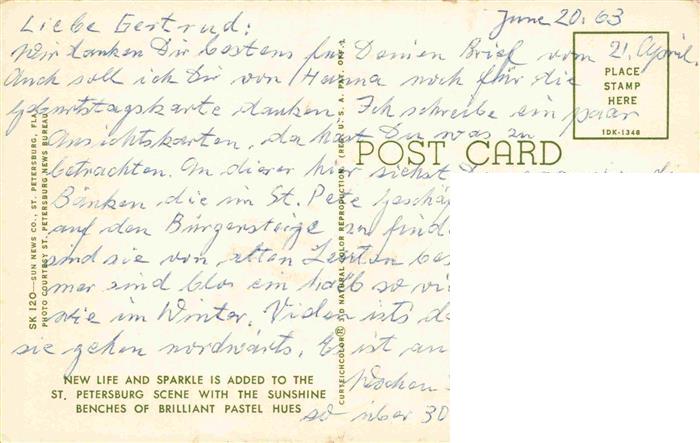 June 20. 63
Liebe Gertrud:
Wir danken Dir bestens für Deinen Brief vom 21. April.
Auch soll ich Dir von Hanna noch für die
Geburtstagskarte danken. Ich schreibe ein paar
Ansichtskarten, da hast Du was zu
betrachten. An dieser hier siehst
Bänken die im St. Pete
auf den Bürgersteige zu
sind sie von alten Leuten
mer sind blos ein halb so
wie im Winter. Vielen ists
sie gehen nordwärts. Es ist
Wochen
so über 30
PLACE
STAMP
HERE
1DK-1348
POST CARD
SK 120—SUN NEWS CO., ST. PETERSBURG, FLA.
PHOTO COURTESY ST. PETERSBURG NEWS BUREAU
CURTEICHCOLOR® 3-D NATURAL COLOR REPRODUCTION (REG. U. S. A. PAT. OFF.)
NEW LIFE AND SPARKLE IS ADDED TO THE
ST. PETERSBURG SCENE WITH THE SUNSHINE
BENCHES OF BRILLIANT PASTEL HUES